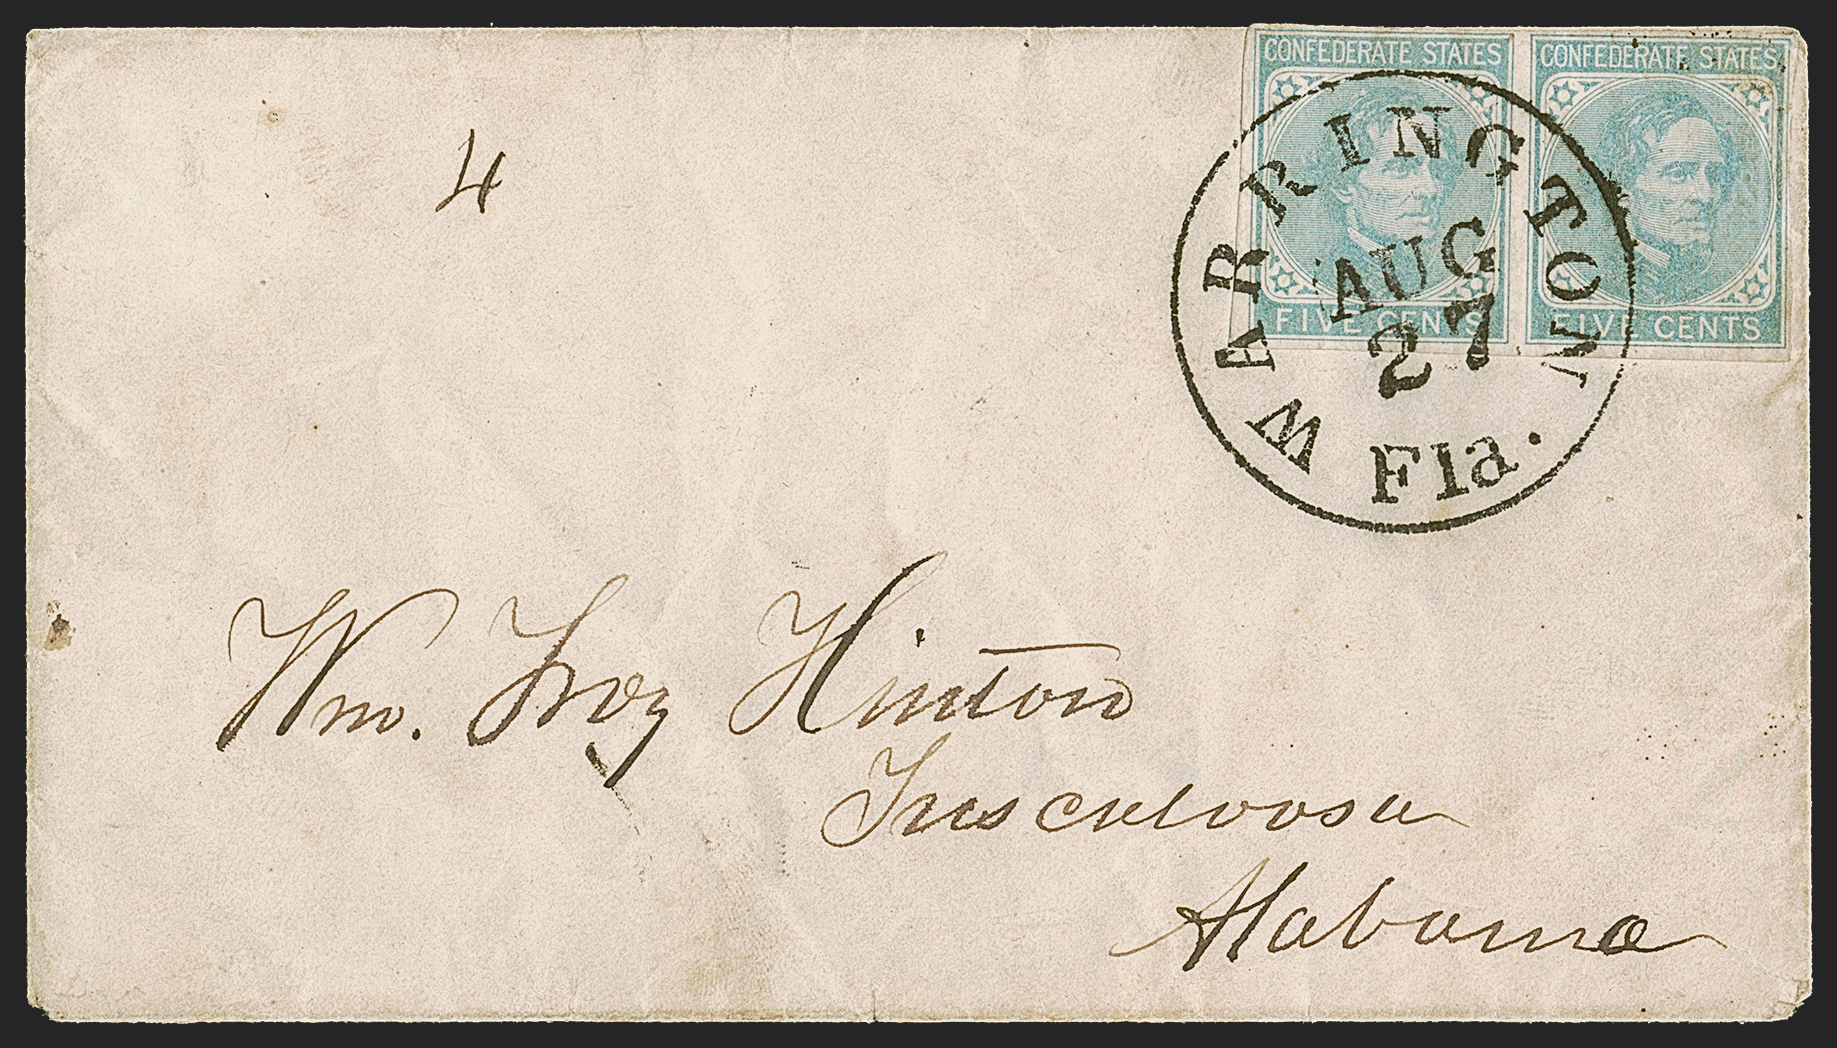 CONFEDERATE STATES
FIVE CENTS
CONFEDERATE STATES
FIVE CENTS
WARRINGTON
AUG
27
Fla.
4
Wm. Hinton
Tuscaloosa
Alabama